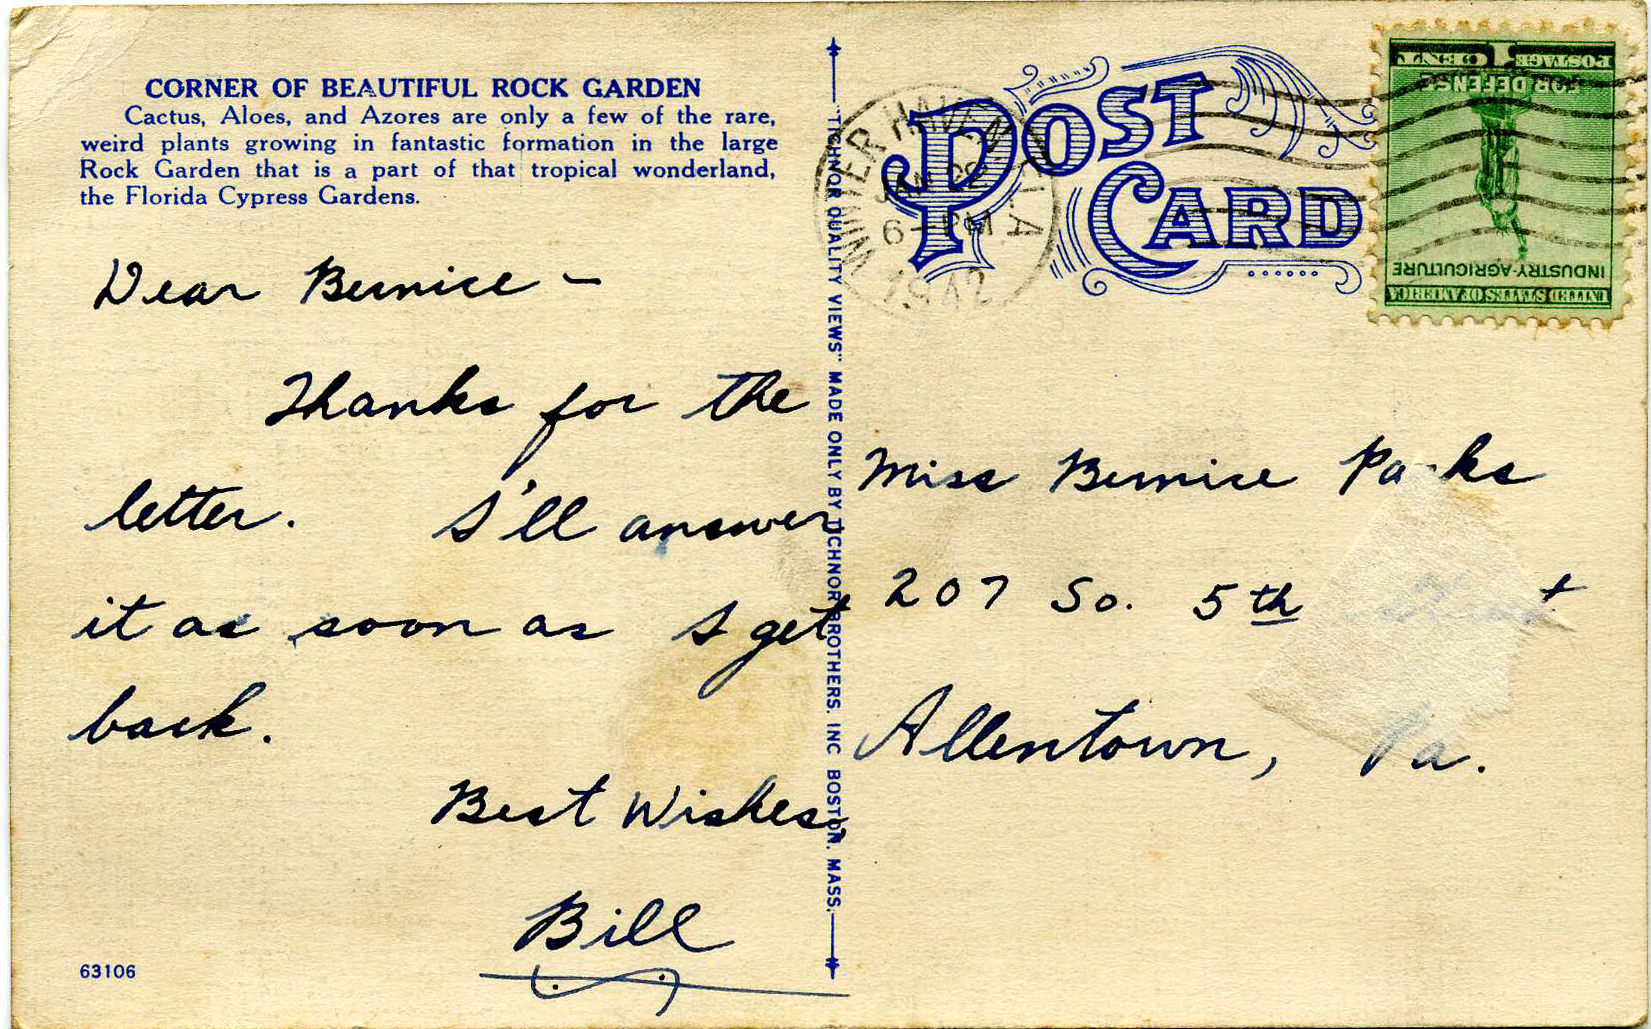 CORNER OF BEAUTIFUL ROCK GARDEN
Cactus, Aloes, and Azores are only a few of the rare,
weird plants growing in fantastic formation in the large
Rock Garden that is a part of that tropical wonderland,
the Florida Cypress Gardens.
Dear Bernice –
Thanks for the
letter. I'll answer
it as soon as I get
back.
Best Wishes,
Bill
63106
"TICHNOR QUALITY VIEWS" MADE ONLY BY TICHNOR BROTHERS, INC. BOSTON, MASS.
POST
CARD
WINTER HAVEN FLA
JAN 22
6–PM
1942
UNITED STATES OF AMERICA
INDUSTRY-AGRICULTURE
FOR DEFENSE
POSTAGE 1 CENT
Miss Bernice Parks
207 So. 5th
Allentown, Pa.